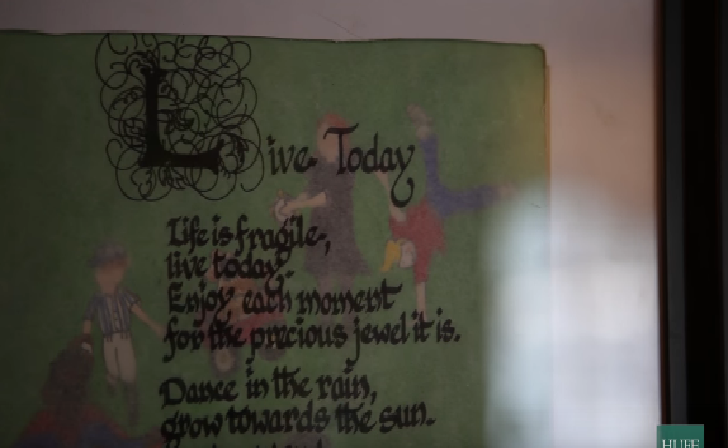 Live Today
Life is fragile,
live today.
Enjoy each moment
for the precious jewel it is.
Dance in the rain,
grow towards the sun.
HUFF